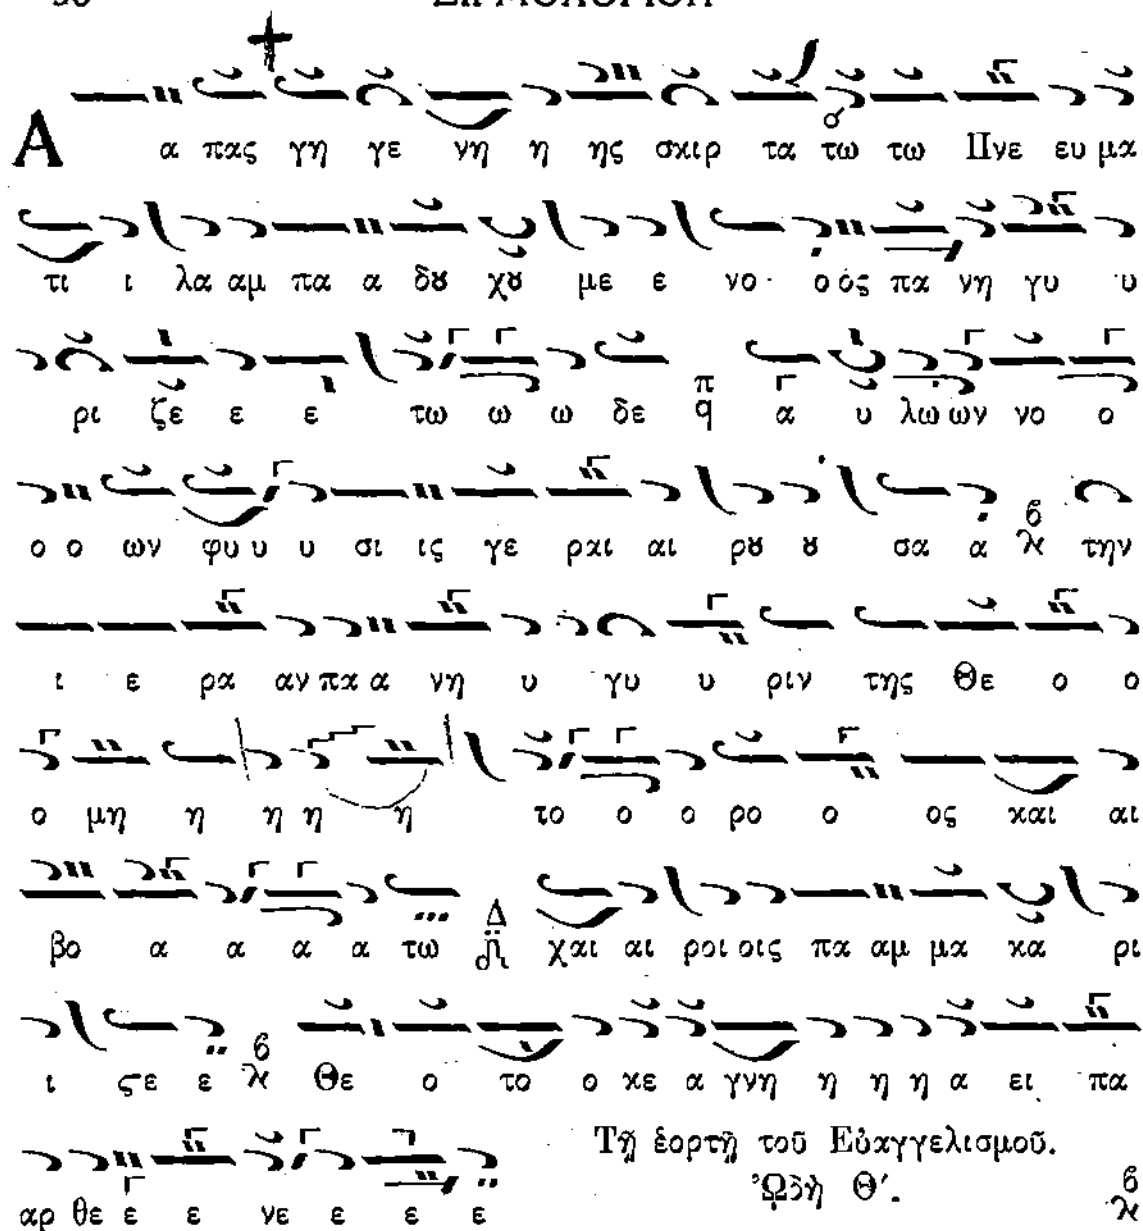 Α α πας γη γε νη η ης σκιρ τα τω τω Πνε ευ μα
τι ι λα αμ πα α δȣ χȣ με ε νο ο ός πα νη γυ υ
ρι ζε ε ε τω ω ω δε π q α υ λω ων νο ο
ο ο ων φυ υ υ σι ις γε ραι αι ρȣ ȣ σα α την
ι ε ρα αν πα α νη υ γυ υ ριν της Θε ο ο
ο μη η η η η το ο ο ρο ο ος και αι
βο α α α α τω Δ χαι αι ροι οις πα αμ μα κα ρι
ι ϛε ε Θε ο το ο κε α γνη η η η α ει πα
αρ θε ε ε νε ε ε ε
Τῇ ἑορτῇ τοῦ Εὐαγγελισμοῦ.
ᾨδὴ Θʹ.